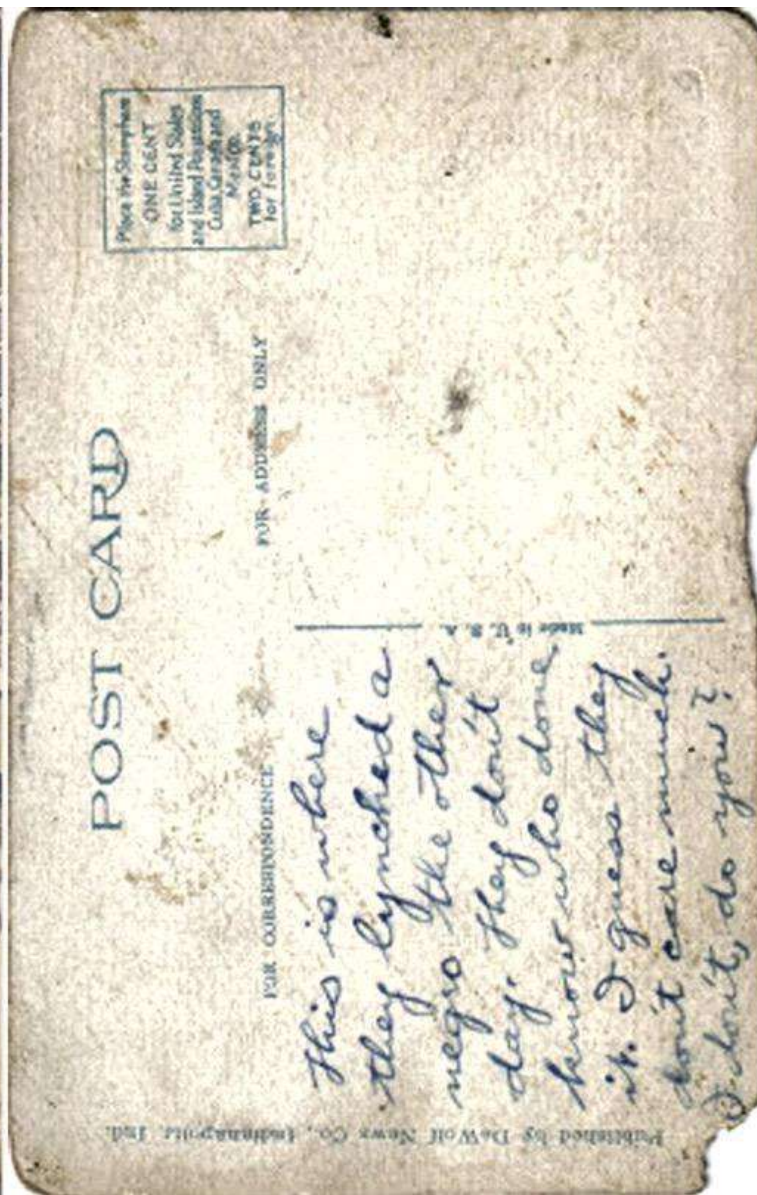 POST CARD
Place the Stamp here
ONE CENT
for United States
and Island Possessions
Cuba, Canada and
Mexico.
TWO CENTS
for Foreign.
FOR CORRESPONDENCE
FOR ADDRESS ONLY
This is where
they lynched a
negro the other
day. They don't
know who done
it. I guess they
don't care much.
I don't, do you?
Made in U. S. A.
Published by DeWolf News Co., Indianapolis, Ind.